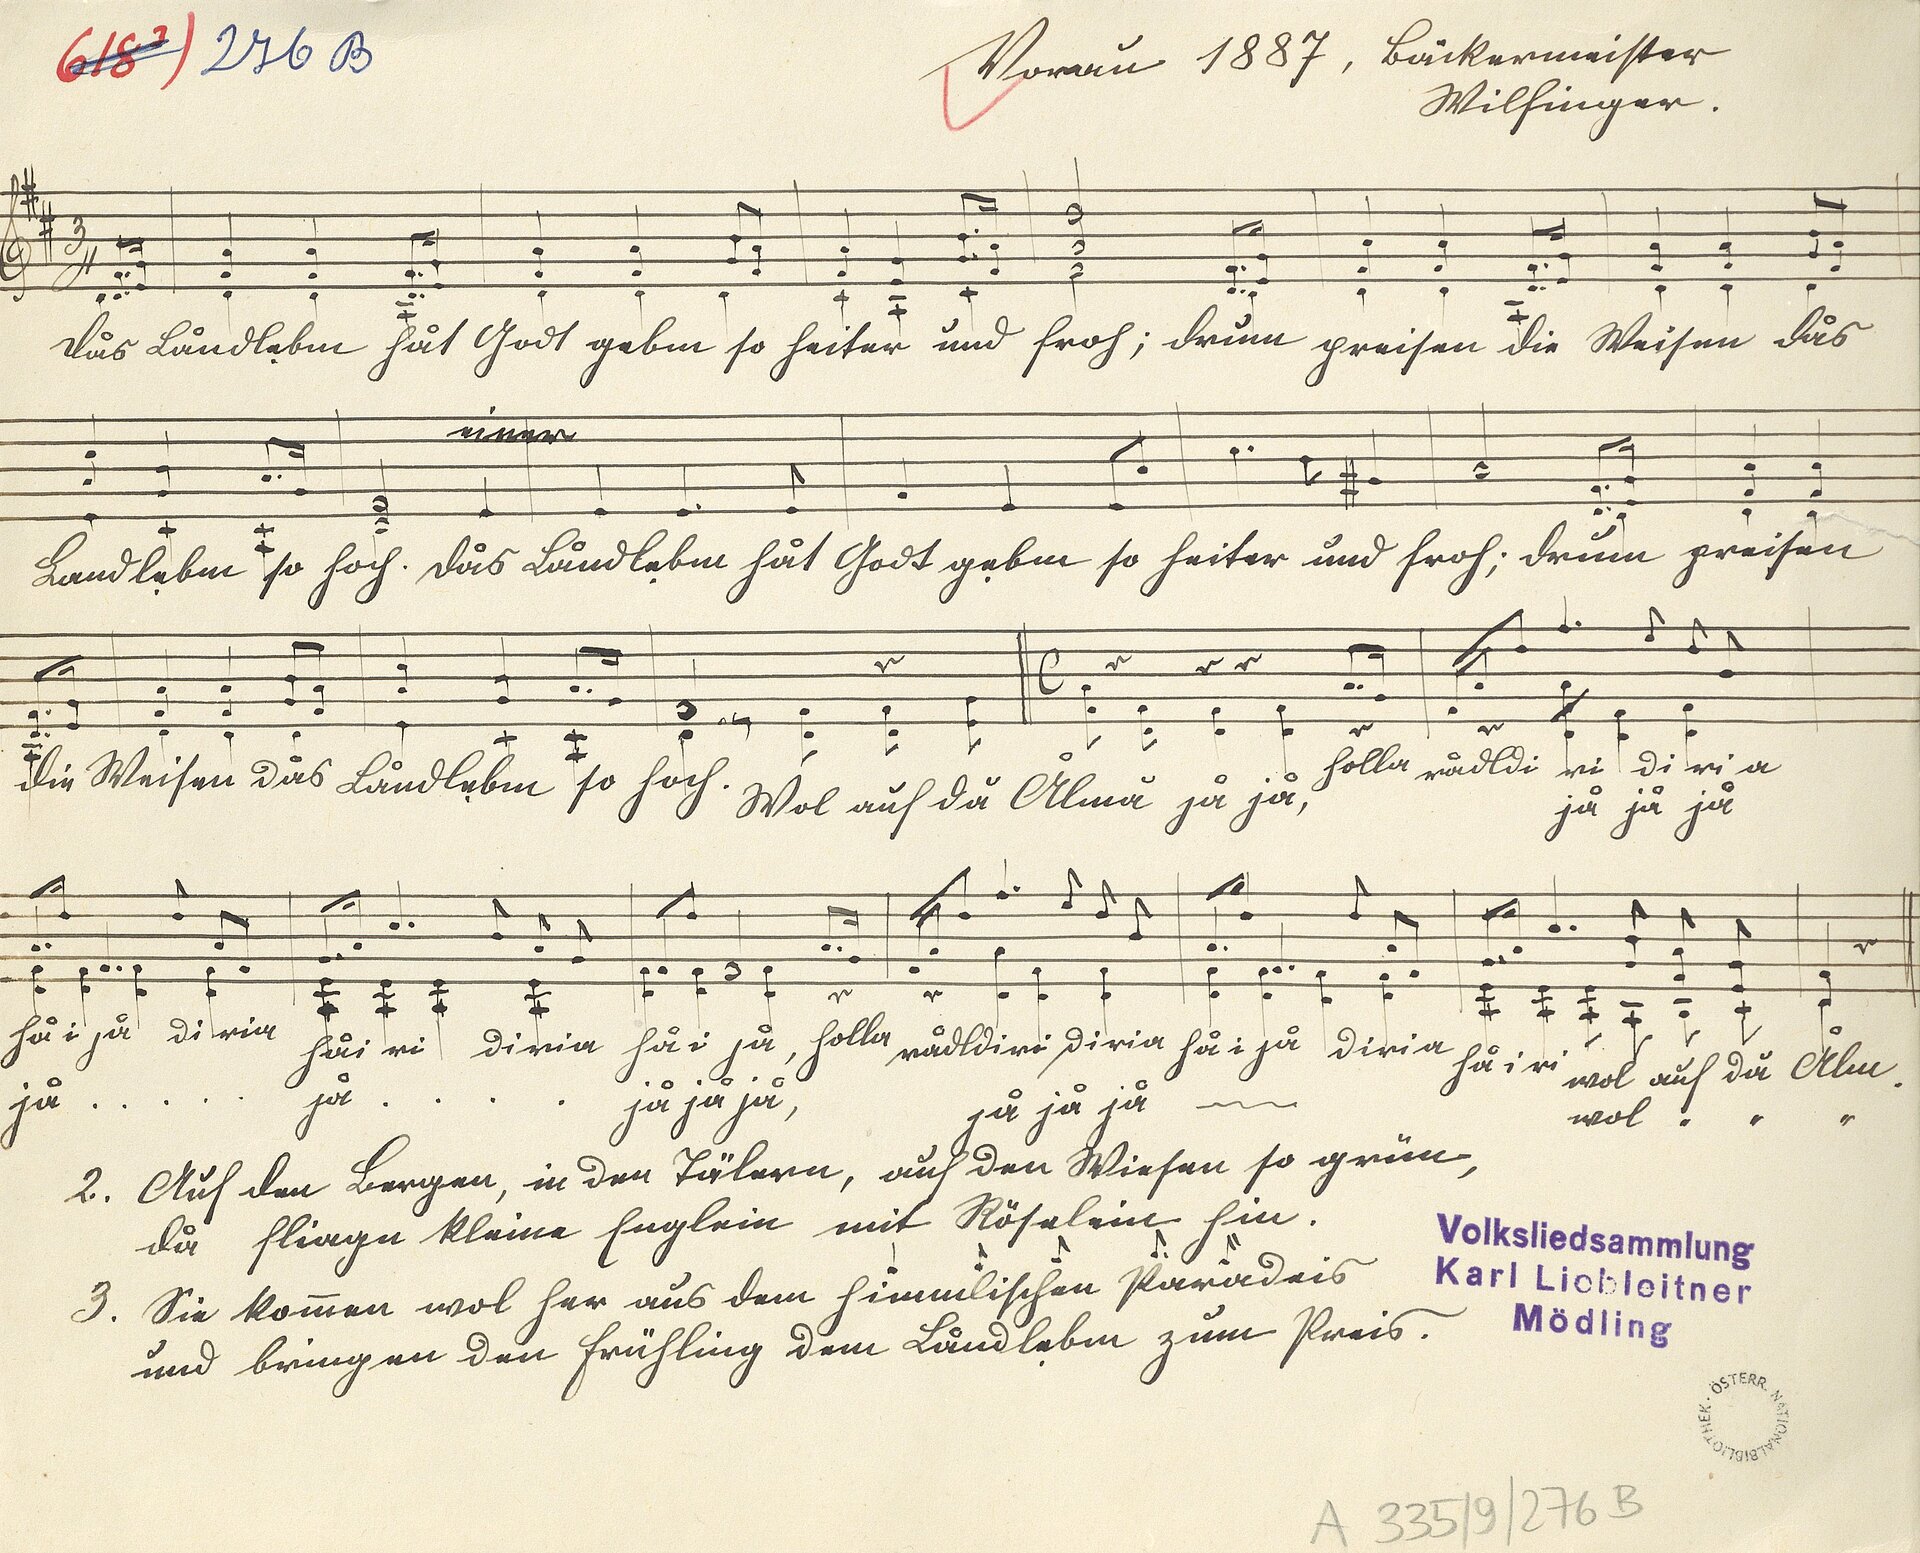 618²) 276 B
Vorau 1887, Bäckermeister
Wilfinger.
Dås Låndlebm håt Godt gebm so heiter und froh; drum preisen die Weisen dås
einer
Landlebm so hoch. Dås Låndlebm håt Godt gebm so heiter und froh; drum preisen
die Weisen dås Låndlebm so hoch. Wol auf då Ålmå jå jå, holla rådldi ri di ri a
jå jå jå
hå i jå di ria håi ri diria hå i jå, holla rådldiri diria hå i jå diria hå i ri wol auf då Ålm.
jå . . . . . jå . . . . jå jå jå, jå jå jå wol " " "
2. Auf den Bergen, in den Tälern, auf den Wiesen so grün,
då fliagn kleine Englein mit Röselein hin.
3. Sie kom̅en wol her aus dem himmlischen Påradeis
und bringen den Frühling dem Låndlebm zum Preis.
Volksliedsammlung
Karl Liebleitner
Mödling
ÖSTERR. NATIONALBIBLIOTHEK.
A 335/9/276 B